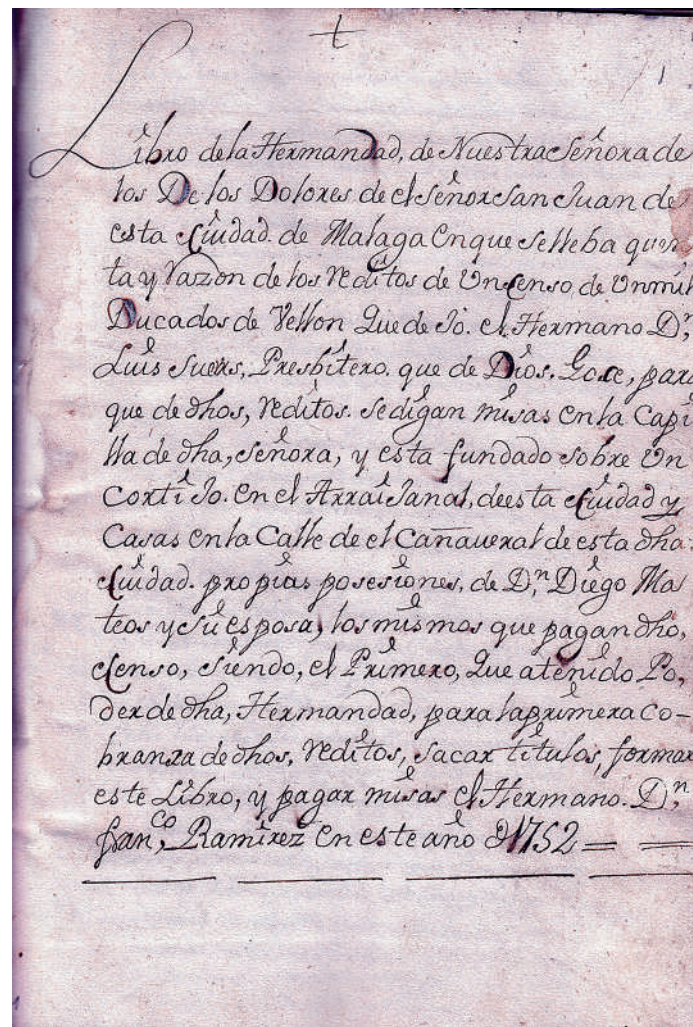 1
Libro de la Hermandad, de Nuestra Señora de
los De los Dolores de el Señor San Juan de
esta Ciudad. de Malaga En que se lleba quen
ta y Razon de los Reditos de Un Censo de Un mil
Ducados de Vellon Que de Jo. el Hermano D.n
Luis Suers, Presbitero. que de Dios. Goce, para
que de dhos, Reditos. se digan misas en la Capi
lla de dha, Señora, y esta fundado sobre Un
Corti Jo. en el Arrai Janal, de esta Ciudad y
Casas en la Calle de el Cañaveral de esta dha
Ciudad. propias posesiones, de D.n Diego Ma
teos y su esposa, los mismos que pagan dho,
Censo, siendo, el Primero, Que a tenido Po,
der de dha, Hermandad, para la primera Co-
branza de dhos, Reditos, sacar titulos, formar
este Libro, y pagar misas el Hermano. D.n
fran,co Ramirez En este año D 1752 = =